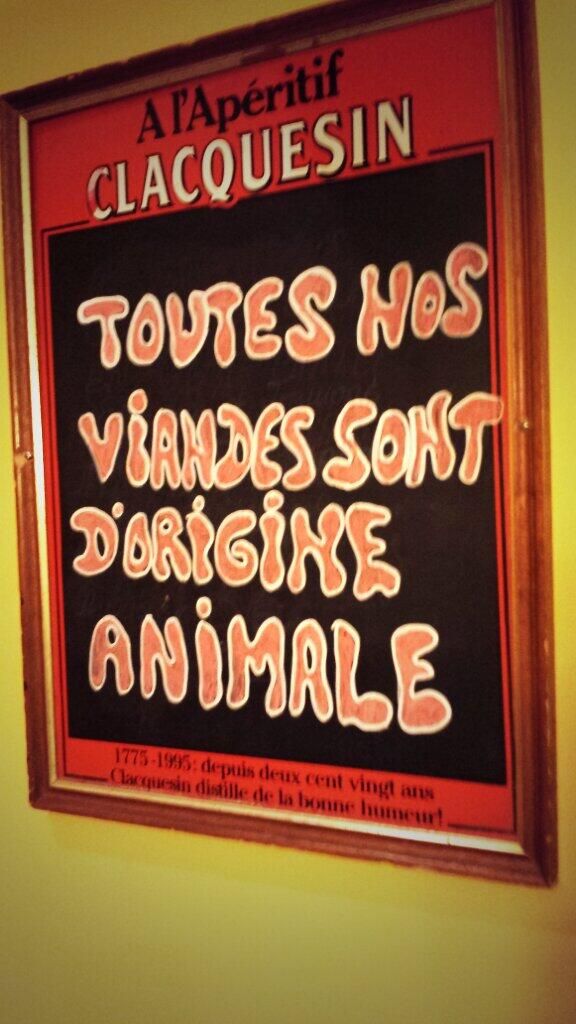 A l'Apéritif
CLACQUESIN
TOUTES NOS
ViANDES SONT
D'ORiGiNE
ANiMALE
1775-1995: depuis deux cent vingt ans
Clacquesin distille de la bonne humeur!